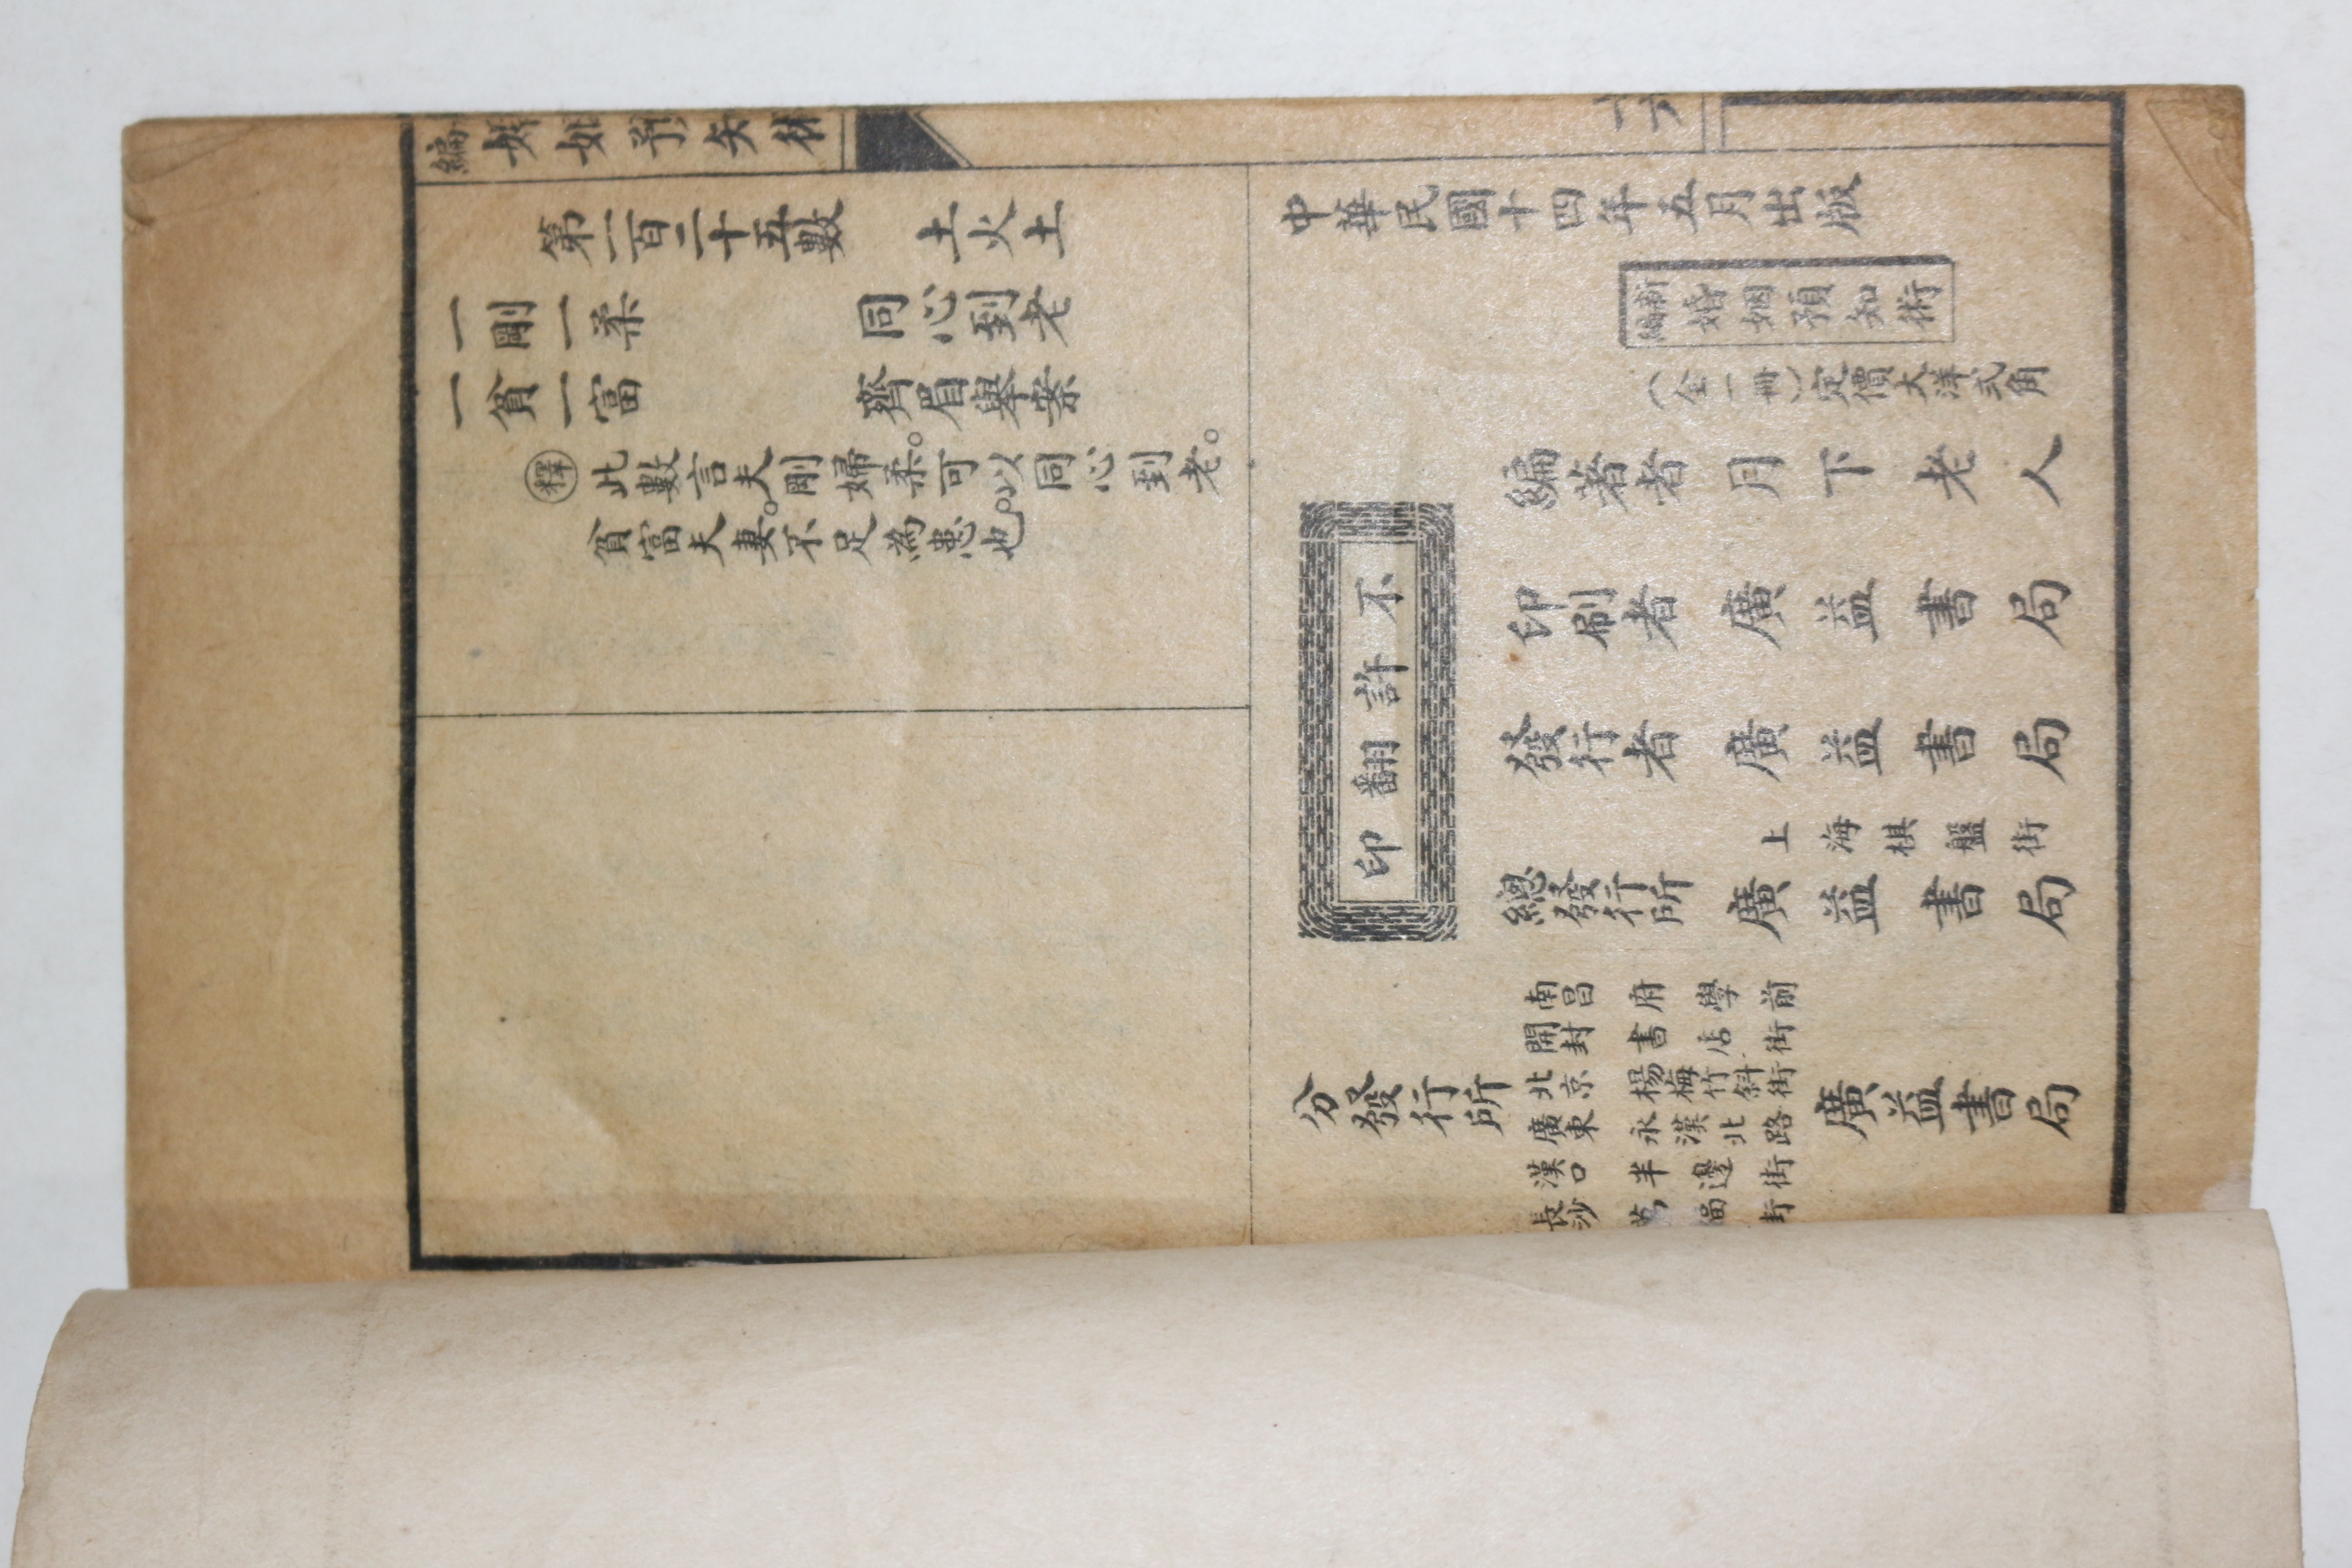 編婚姻預知術
十六
第一百二十五數 土火土
一剛一柔 同心到老
一貧一富 齊眉舉案
釋此數言夫剛婦柔。可以同心到老。
貧富夫妻。不足為患也。
中華民國十四年五月出版
新編婚姻預知術
(全一冊)定價大洋弍角
不許翻印
編著者月下老人
印刷者廣益書局
發行者廣益書局
上海棋盤街
總發行所廣益書局
分發行所
南昌府學前
開封書店街
北京楊梅竹斜街
廣東永漢北路
漢口半邊街
長沙萬福街
廣益書局